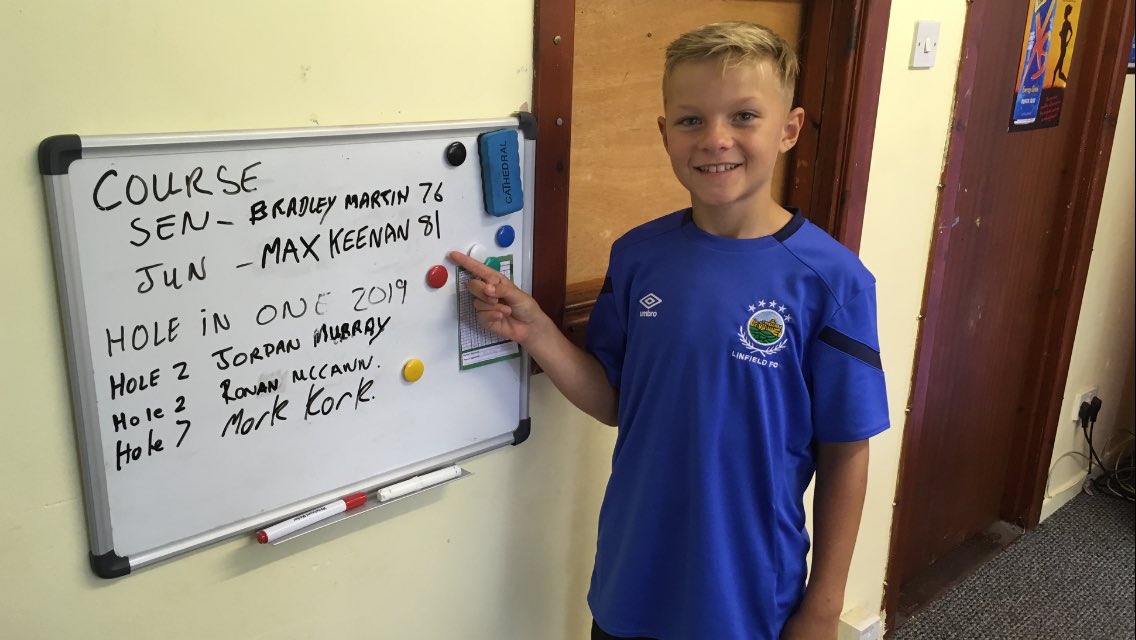 COURSE
SEN - BRADLEY MARTIN 76
JUN - MAX KEENAN 81
HOLE iN ONE 2019
HOLE 2 JORDAN MURRAY
Hole 2 RONAN MCCANN.
Hole 7 Mark Kork.
CATHEDRAL
umbro
LINFIELD FC